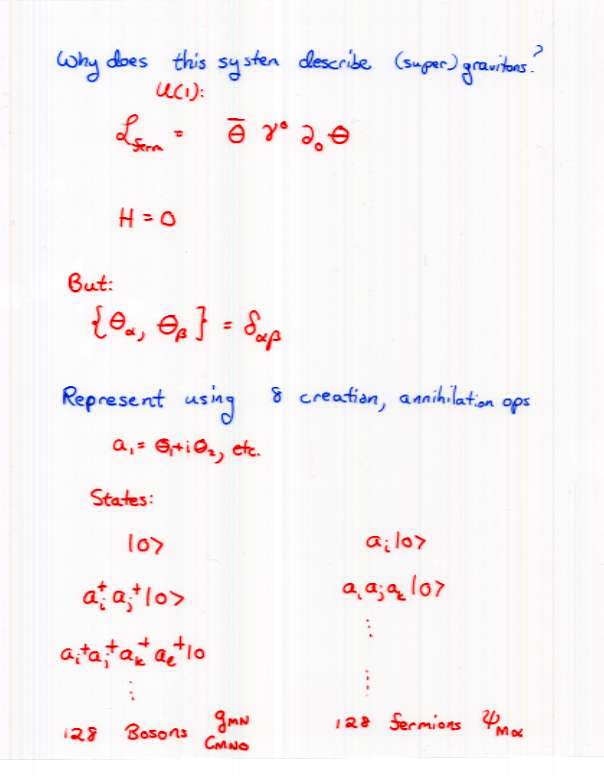 Why does this system describe (super) gravitons?
U(1):
ℒ_ferm = θ̄ γ⁰ ∂₀ θ
H = 0
But:
{θ_α, θ_β} = δ_αβ
Represent using 8 creation, annihilation ops
a₁ = θ₁+iθ₂, etc.
States:
|0> a_i|0>
a_i⁺ a_j⁺|0> a_i a_j a_k|0>
a_i⁺a_j⁺a_k⁺ a_ℓ⁺|0
⋮ ⋮
128 Bosons g_MN 128 fermions Ψ_Mα
C_MNO